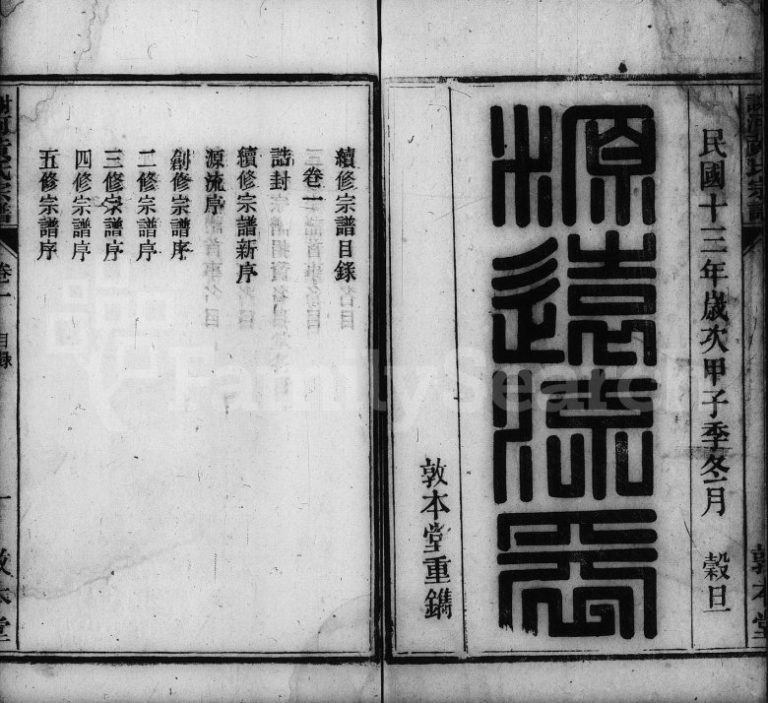 敦本堂
民國十三年歲次甲子季冬月 穀旦
源遠流長
敦本堂重鐫
續修宗譜目錄
卷一
誥封
續修宗譜新序
源流序
創修宗譜序
二修宗譜序
三修宗譜序
四修宗譜序
五修宗譜序
氏宗譜 卷一 目錄 一 敦本堂
FamilySearch